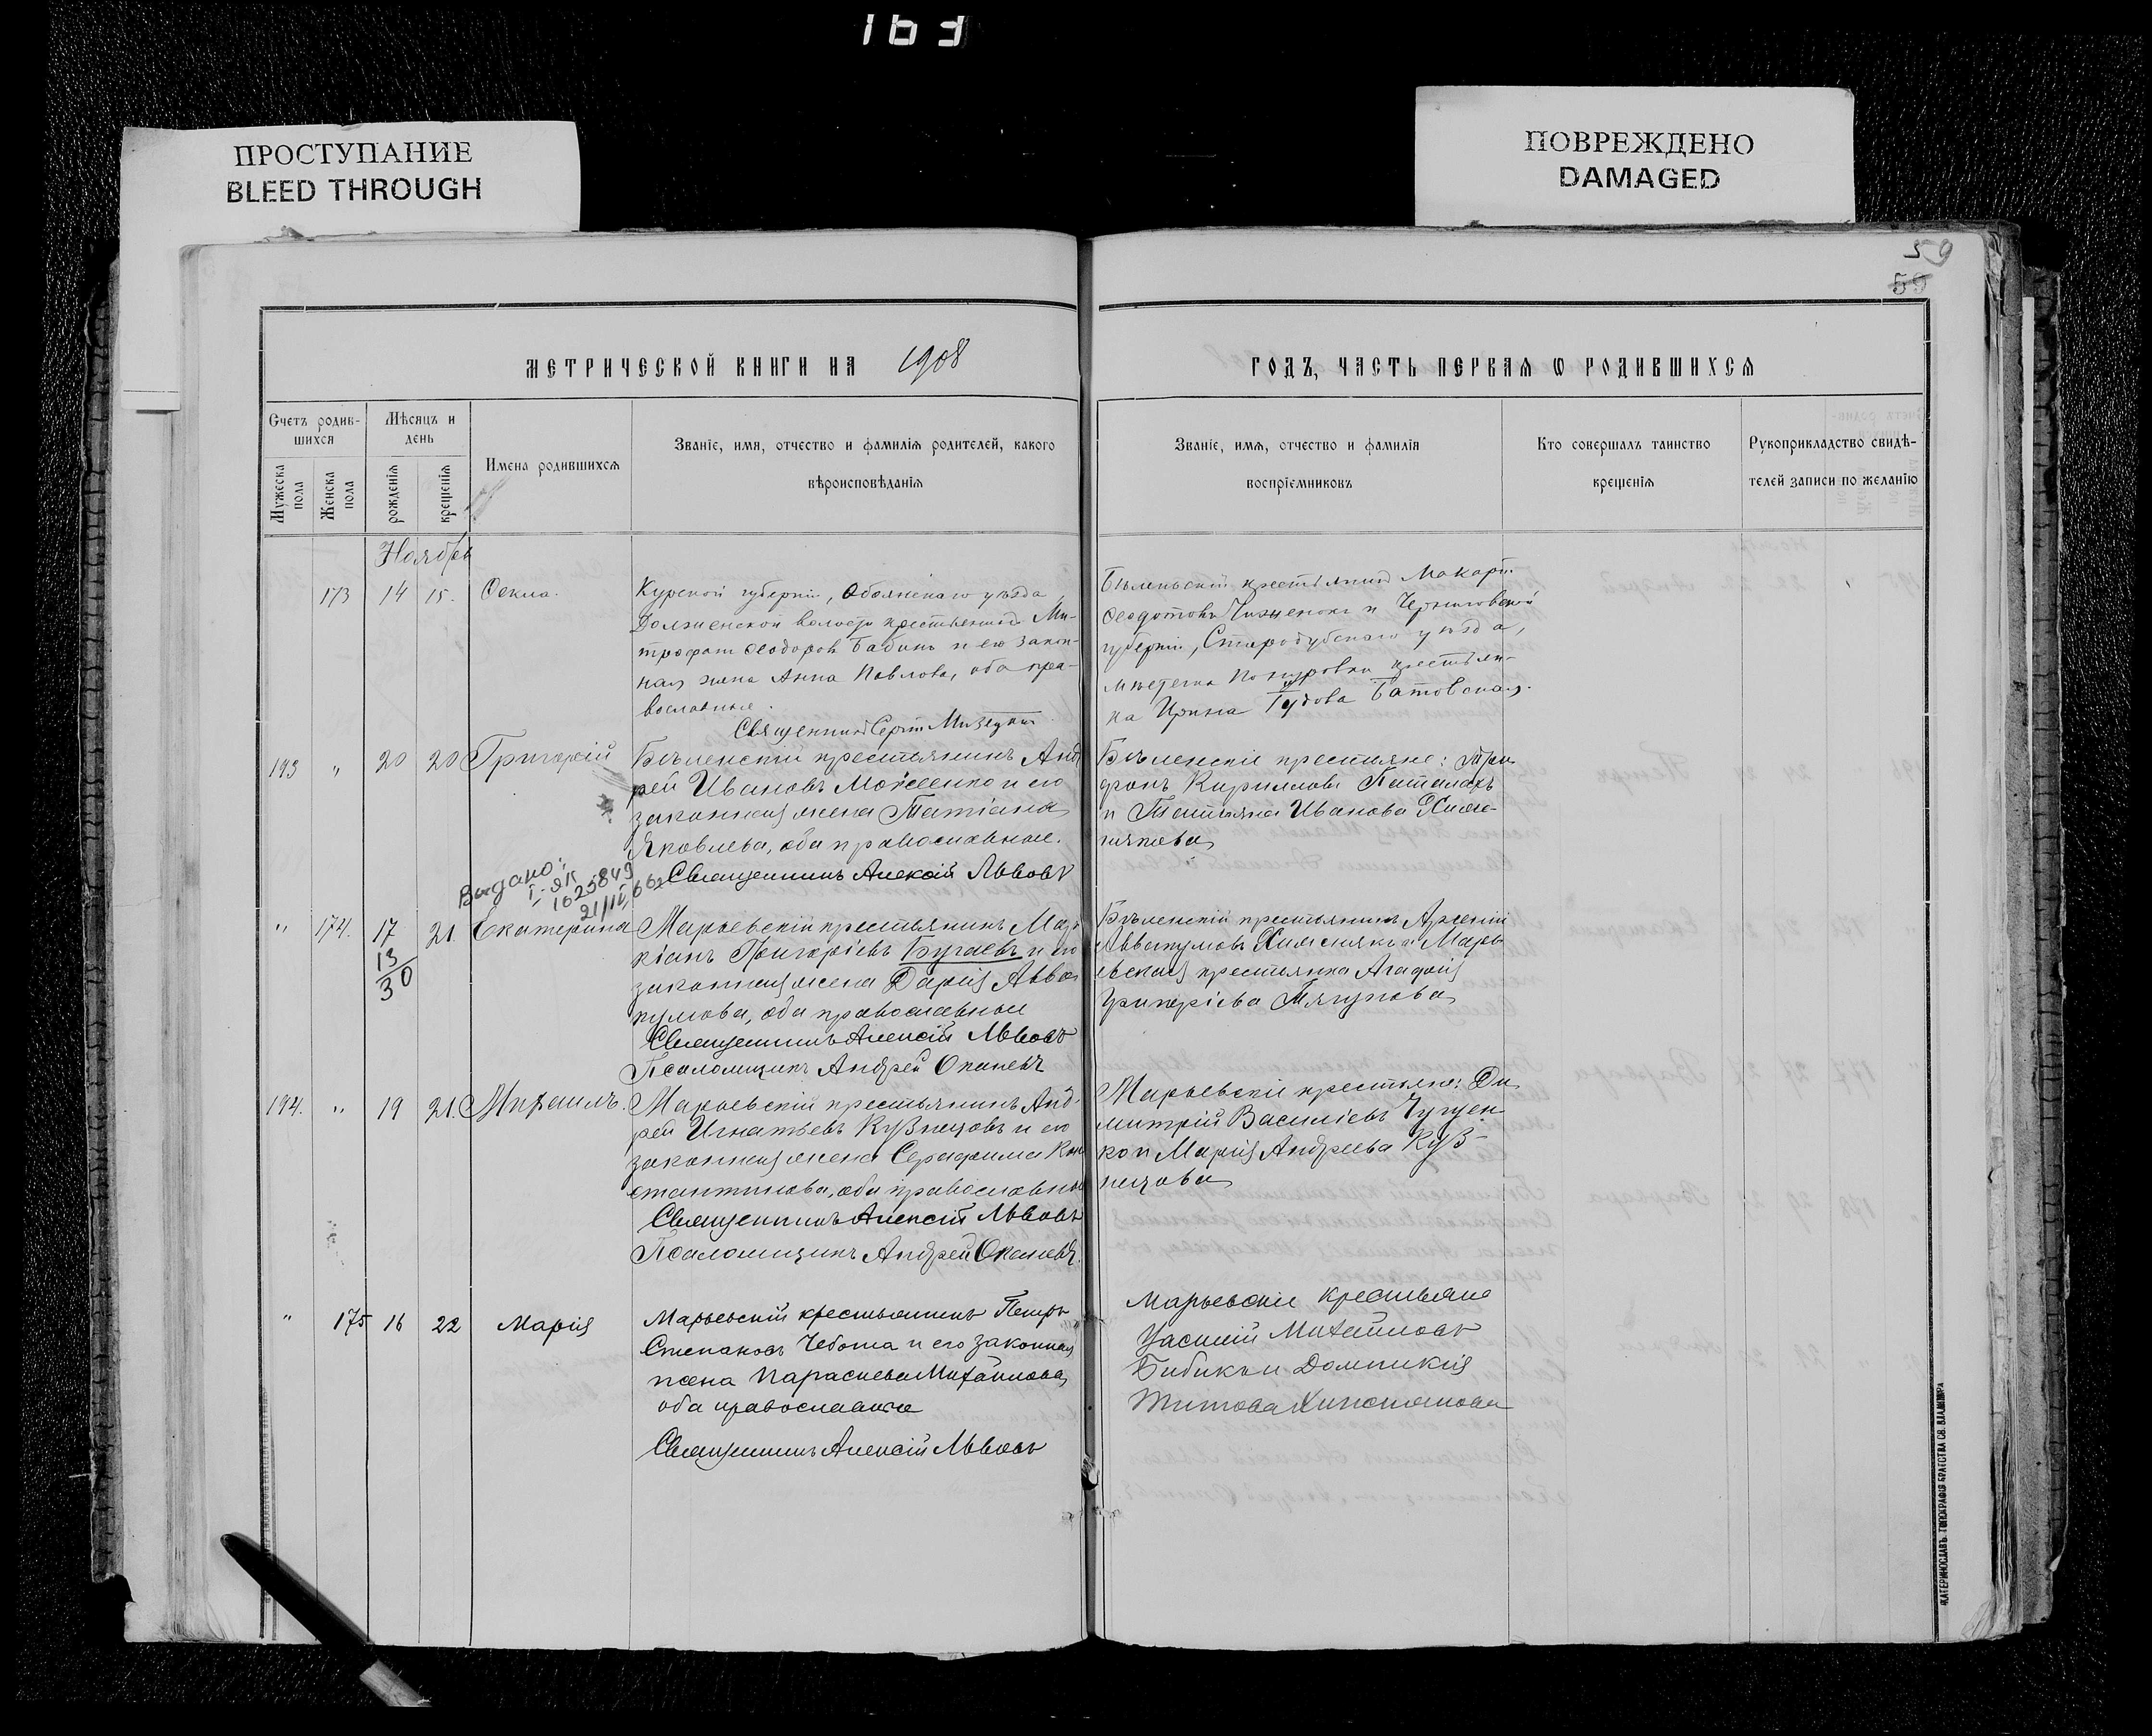 163
ПРОСТУПАНИЕ
BLEED THROUGH
ПОВРЕЖДЕНО
DAMAGED
59
59
МЕТРИЧЕСКОЙ КНИГИ НА 1908
ГОДЪ, ЧАСТЬ ПЕРВАЯ Ѡ РОДИВШИХСЯ
Счетъ родив-
шихся
Мужеска
пола
Женска
пола
Мѣсяцъ и
день
рожденія
крещенія
Имена родившихся
Званіе, имя, отчество и фамилія родителей, какого
вѣроисповѣданія
Званіе, имя, отчество и фамилія
воспріемниковъ
Кто совершалъ таинство
крещенія
Рукоприкладство свидѣ-
телей записи по желанію
Ноябрь
173 14 15. Ѳекла.
Курской губерніи, Обоянскаго уѣзда
Долженской волости крестьянинъ Ми-
трофанъ Ѳеодоровъ Бабинъ и его закон-
ная жена Анна Павлова, оба пра-
вославные.
Священникъ Сергій
Бѣленьскій крестьянинъ Макарій
Ѳеодотовъ и Черниговской
губерніи, Стародубскаго уѣзда,
крестьян-
ка Ирина
193 " 20 20 Григорій
Бѣленскій крестьянинъ Анд
рей Ивановъ Мойсеенко и его
законная жена Татіана
Яковлева, оба православные.
Священникъ Алексій Львовъ
Бѣленскіе крестьяне: Три
фонъ Кирилловъ Паталахъ
и Татьяна Иванова Химс-
някова
Выдано:
I-ЯК
1625849
21/II 66г
" 174. 17 21. Екатерина
13
30
Марьевскій крестьянинъ Мар
кіанъ Григорієвъ Бугаевъ и его
законная жена Дарія Авва
кумова, оба православные
Священникъ Алексій Львовъ
Псаломщикъ Андрей Опаневъ
Бѣленскій крестьянинъ Арсеній
Аввакумовъ Химснякъ и Марь
евская крестьянка Агафія
Григорієва Тягунова
194. " 19 21. Михаилъ.
Марьевскій крестьянинъ Анд-
рей Игнатьевъ Кузнецовъ и его
законная жена Серафима Кон
стантинова, оба православные
Священникъ Алексій Львовъ
Псаломщикъ Андрей Опаневъ.
Марьевскіе крестьяне: Ди
митрій Василіевъ
ко и Марія Андреева Куз-
нецова
" 175 16 22 Марія
Марьевскій крестьянинъ Петръ
Степановъ Чебота и его законная
жена Параскева Михайлова,
оба православные
Священникъ Алексій Львовъ
Марьевскіе крестьяне
Михайловъ
Бибикъ и Домникія
Титова
ЕКАТЕРИНОСЛАВЪ. ТИПОГРАФІЯ БРАТСТВА СВ. ВЛАДИМІРА